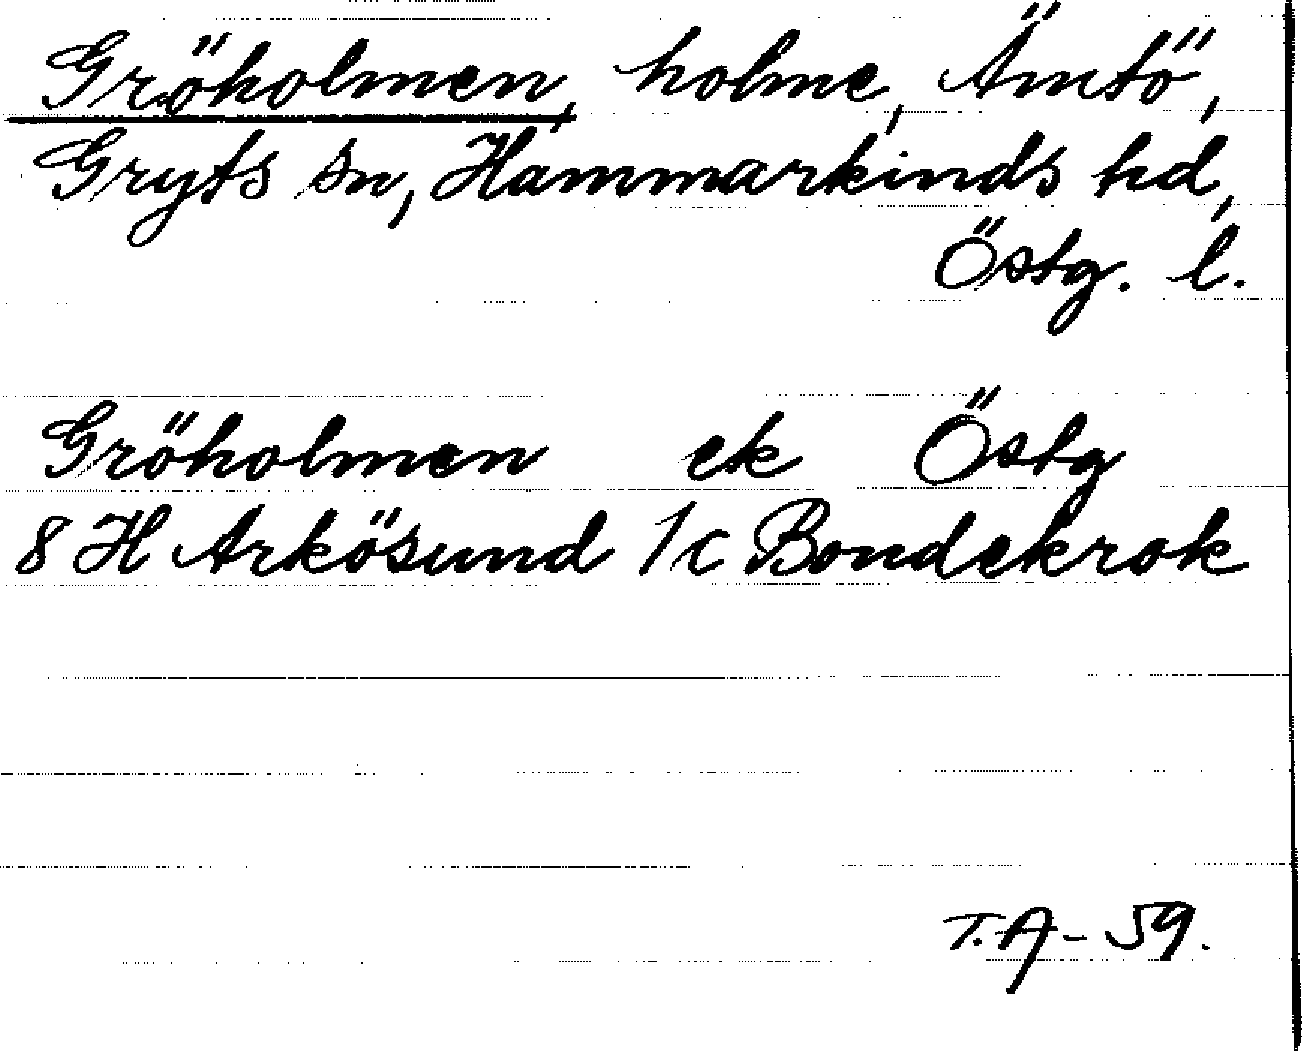 Gröholmen, holme, Ämtö,
Gryts sn, Hammarkinds hd,
Östg. l.
Gröholmen ek Östg
8 H Arkösund 1c Bondekrok
T.A-59.